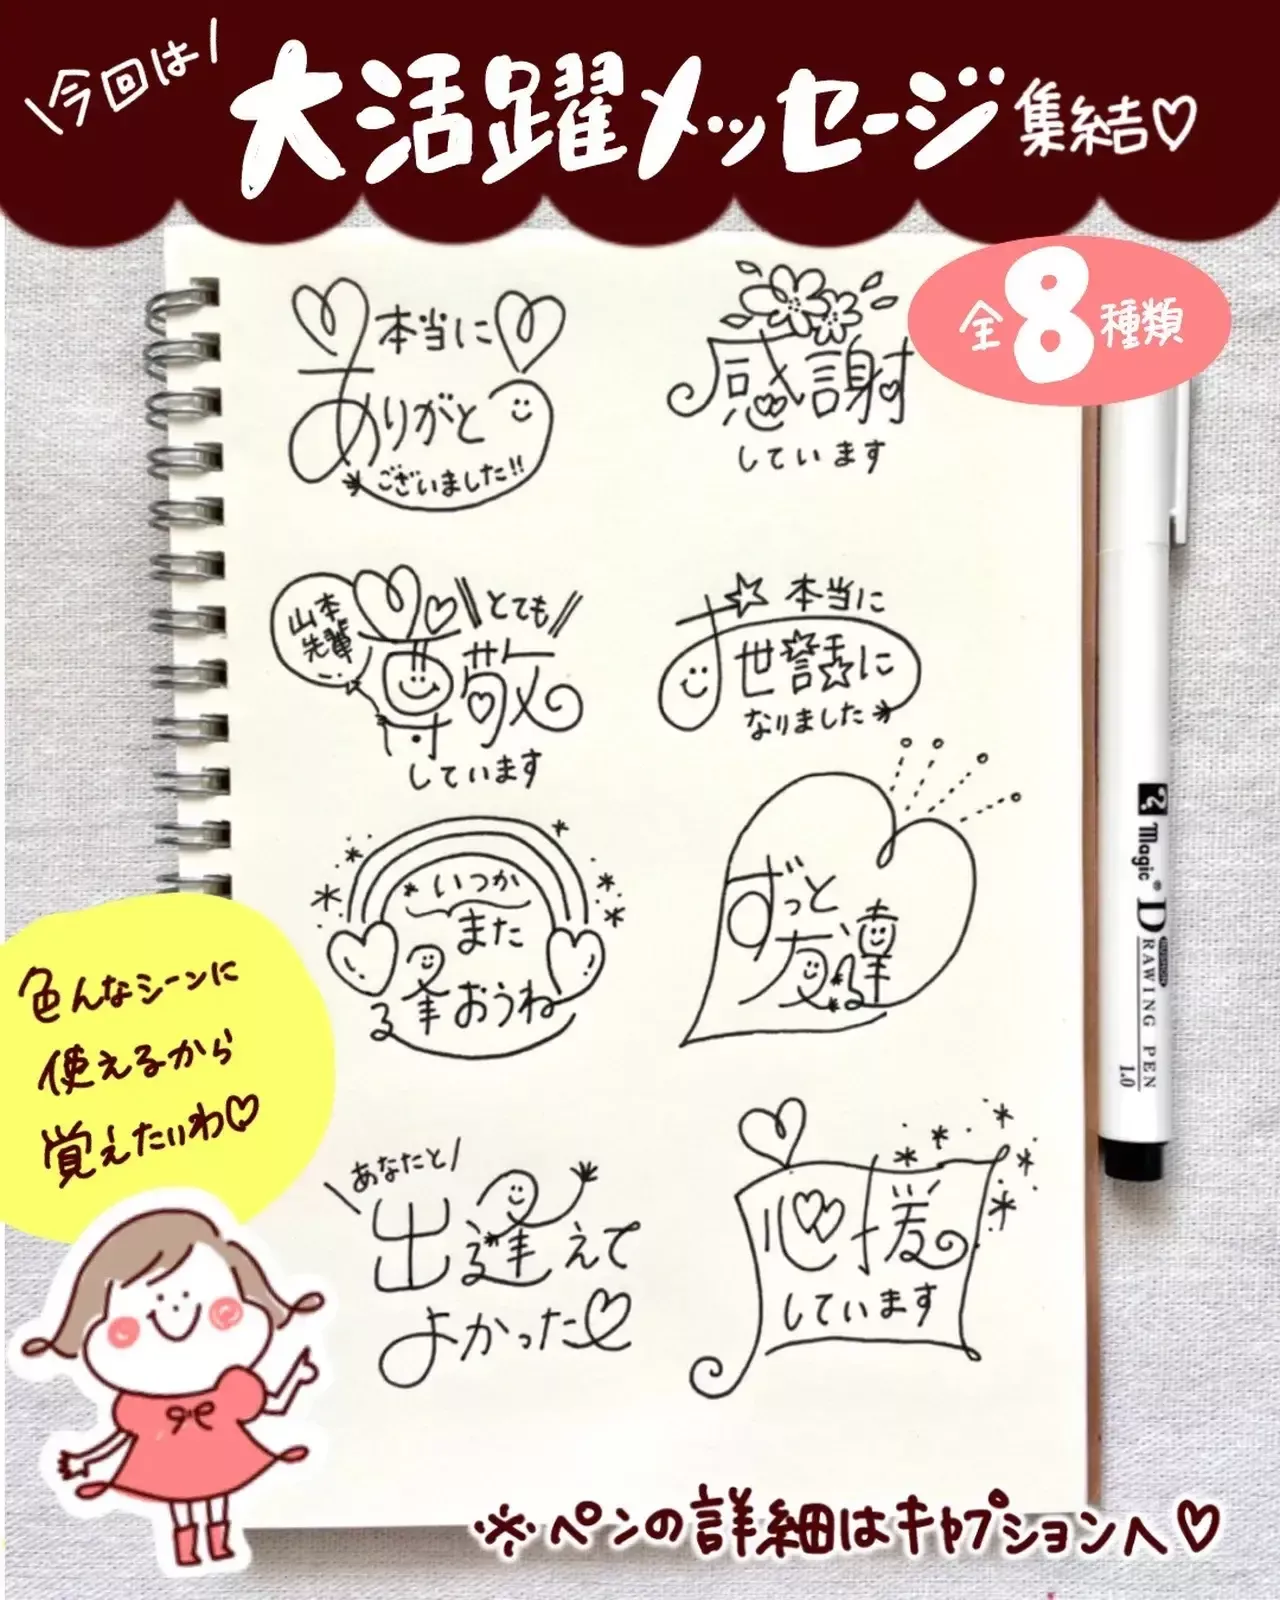 \今回は/
大活躍メッセージ集結♡
全8種類
本当に
ありがと
ございました!!
感謝
しています
山本
先輩
とても
尊敬
しています
本当に
お世話に
なりました
いつか
また
逢おうね
ずっと
友達
あなたと
出逢えて
よかった♡
応援
しています
色んなシーンに
使えるから
覚えたいわ♡
Magic®
DRAWING PEN
1.0
※ペンの詳細はキャプションへ♡